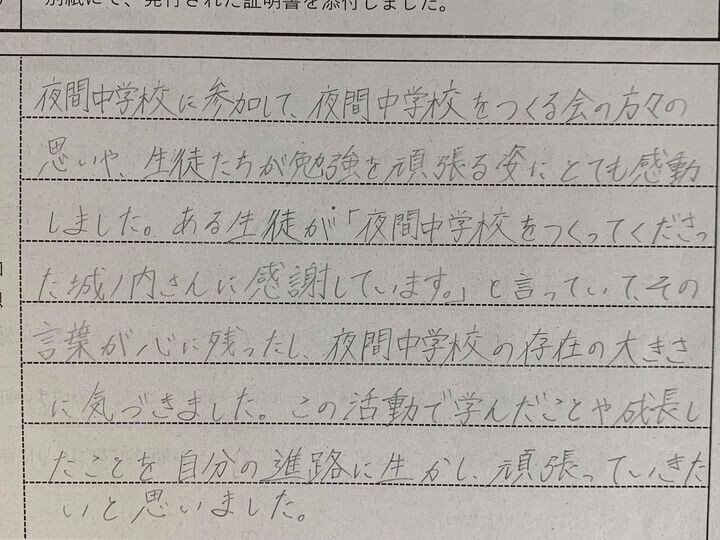 別紙にて、発行された証明書を添付しました。
夜間中学校に参加して、夜間中学校をつくる会の方々の
思いや、生徒たちが勉強を頑張る姿にとても感動
しました。ある生徒が「夜間中学校をつくってくださっ
た城ノ内さんに感謝しています。」と言っていて、その
言葉が心に残ったし、夜間中学校の存在の大きさ
に気づきました。この活動で学んだことや成長し
たことを自分の進路に生かし、頑張っていきた
いと思いました。